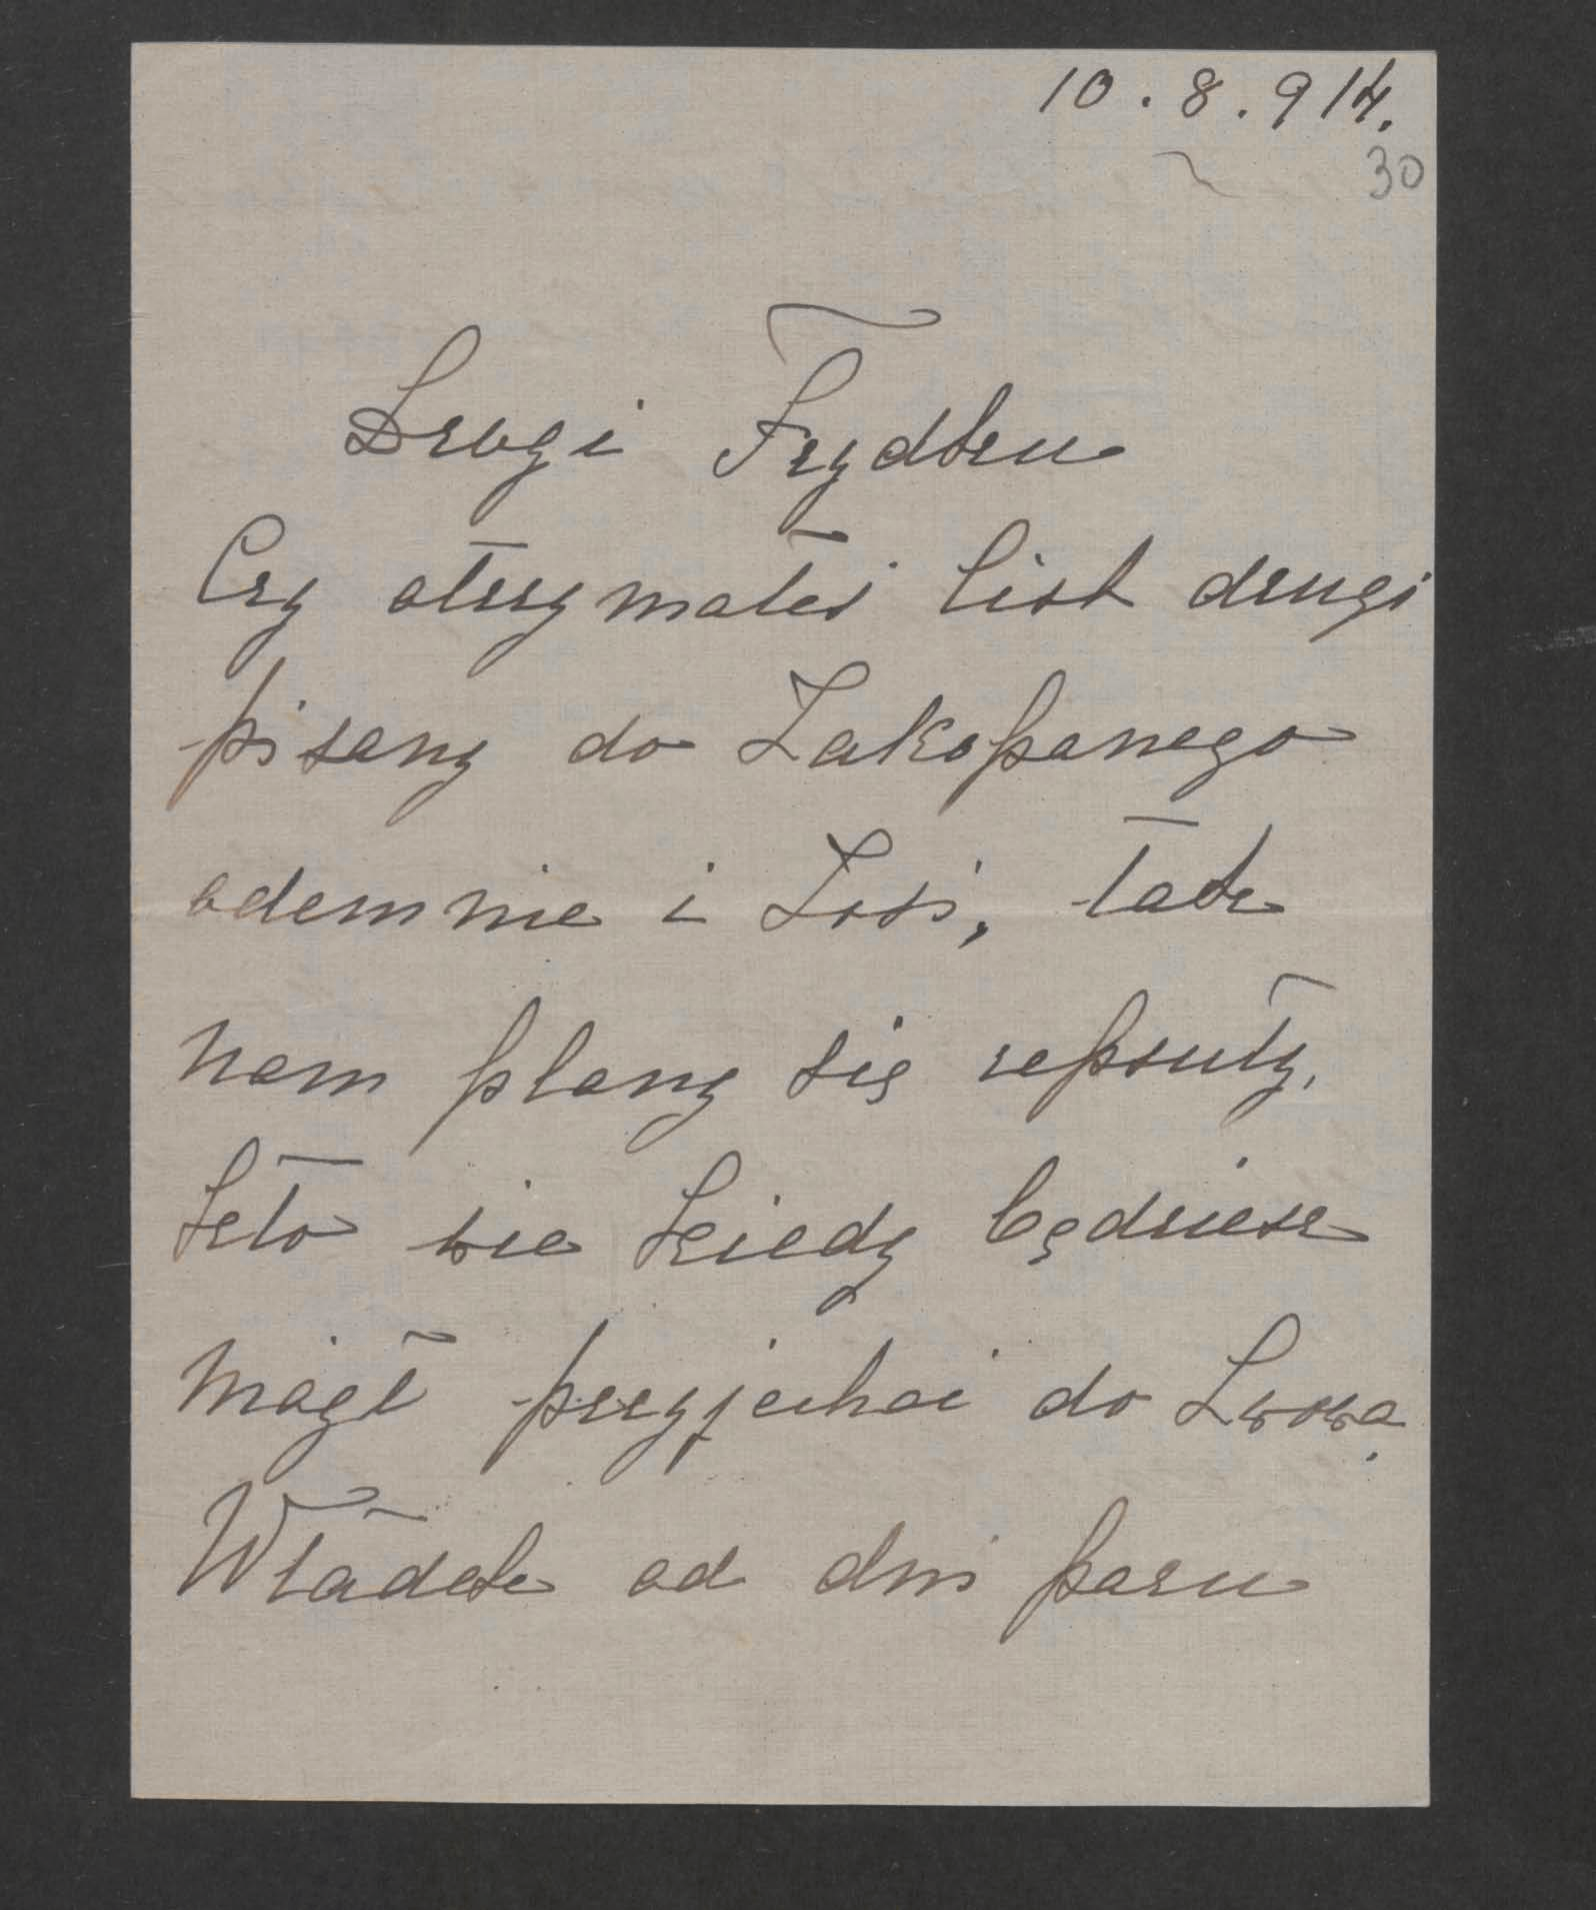 10.8.914.
30
Drogi Frydku
Czy otrzymałeś list drugi
pisany do Zakopanego
odemnie i Zosi, tak
nam plany się zepsuły.
Kto wie kiedy będziesz
mógł przyjechać do Lwowa.
Władek od dni paru